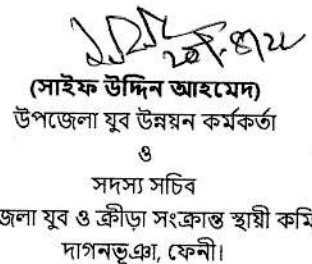 (সাইফ উদ্দিন আহমেদ)
উপজেলা যুব উন্নয়ন কর্মকর্তা
ও
সদস্য সচিব
জেলা যুব ও ক্রীড়া সংক্রান্ত স্থায়ী কমি
দাগনভূঞা, ফেনী।